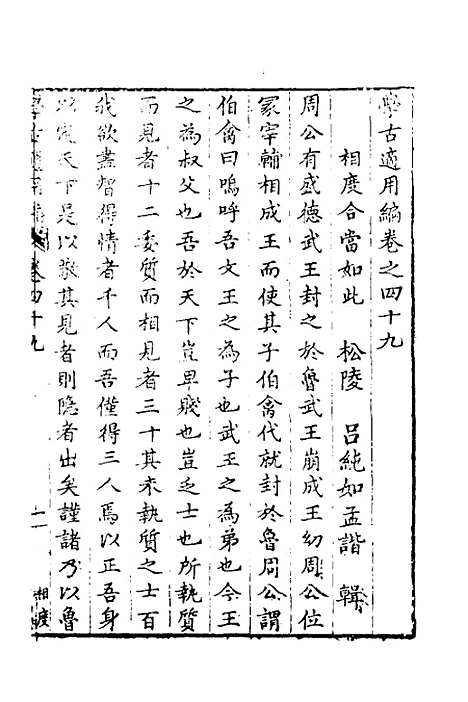 學古適用編卷之四十九
相度合當如此 松陵 吕純如孟諧 輯
周公有盛德武王封之於魯武王崩成王幼周公位
冢宰輔相成王而使其子伯禽代就封於魯周公謂
伯禽曰嗚呼吾文王之為子也武王之為弟也今王
之為叔父也吾於天下豈卑賤也豈乏士也所執質
而見者十二委質而相見者三十其未執質之士百
我欲盡智得情者千人而吾僅得三人焉以正吾身
以定天下是以敬其見者則隐者出矣謹諸乃以魯
學古適用編 卷四十九 一 相度